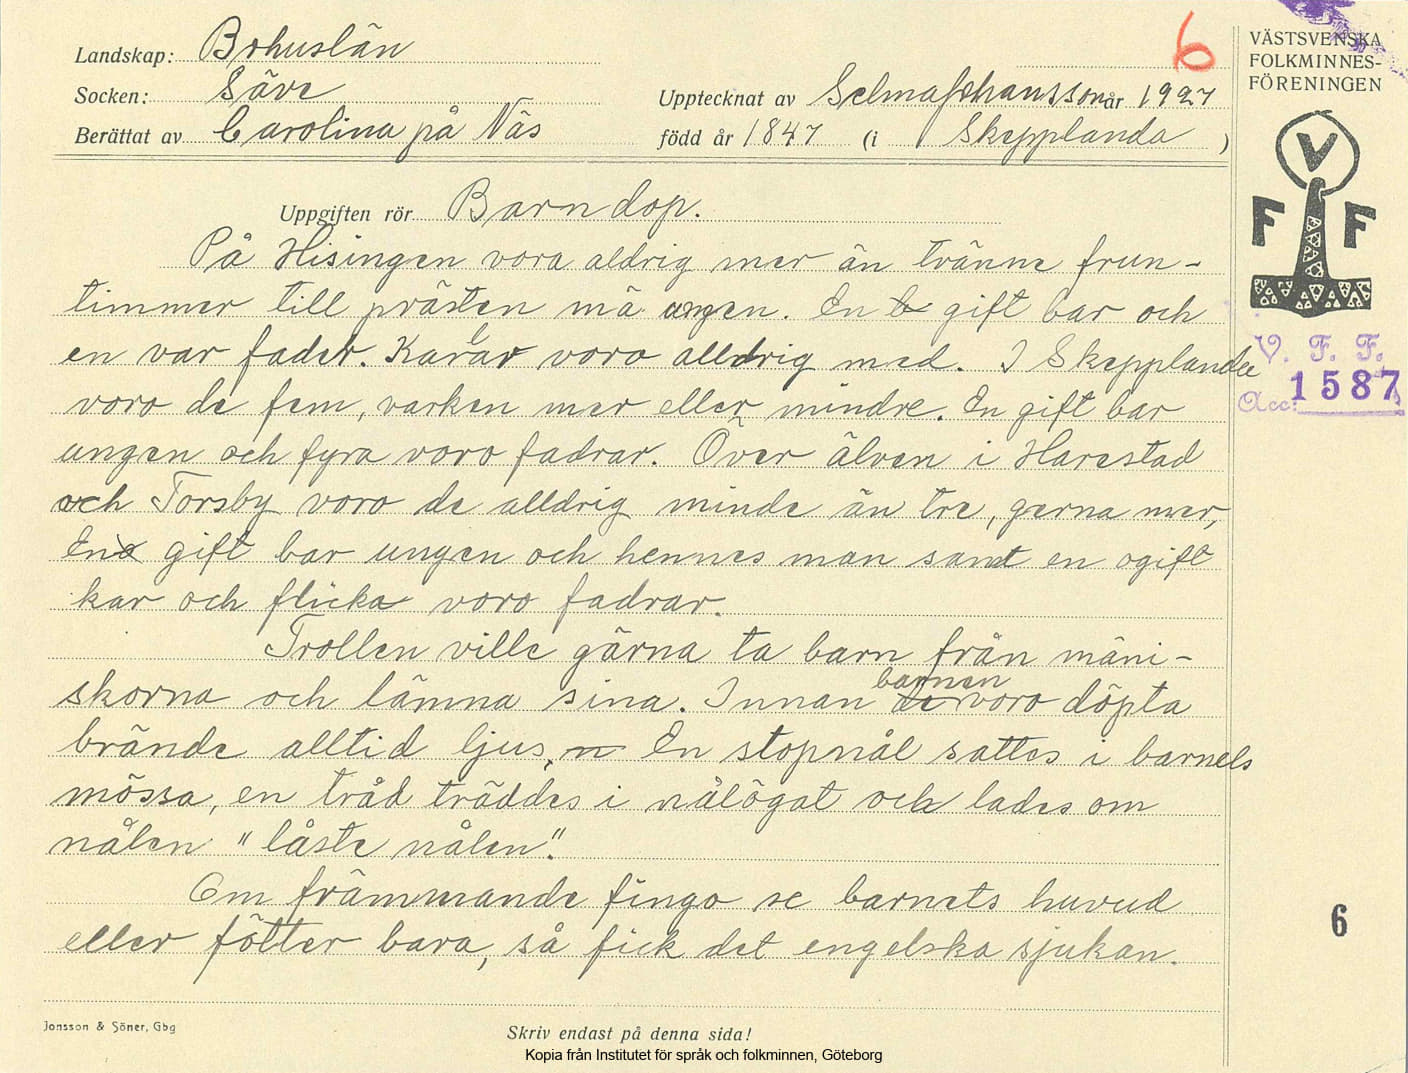 Landskap: Bohuslän
Socken: Säve
Berättat av Carolina på Näs
6
Upptecknat av Selma Johansson år 1927
född år 1847 (i Skepplanda )
VÄSTSVENSKA
FOLKMINNES-
FÖRENINGEN
V
F F
V. F. F.
Acc: 1587
Uppgiften rör Barndop.
På Hisingen vora aldrig mer än tränne frun-
timmer till prästen mä ungen. En gift bar och
en var fader. Karar voro alldrig med. I Skepplanda
voro de fem, varken mer eller mindre. En gift bar
ungen och fyra voro fadrar. Över älven i Harestad
och Torsby voro de alldrig minde än tre, gerna mer,
En gift bar ungen och hennes man samt en ogift
kar och flicka voro fadrar.
Trollen ville gärna ta barn från mäni-
skorna och lämna sina. Innan de barnen voro döpta
brände alltid ljus, En stopnål sattes i barnets
mössa, en tråd träddes i nålögat och lades om
nålen "låste nålen".
Om främmande fingo se barnets huvud
eller fötter bara, så fick det engelska sjukan.
6
Jonsson & Söner, Gbg
Skriv endast på denna sida!
Kopia från Institutet för språk och folkminnen, Göteborg